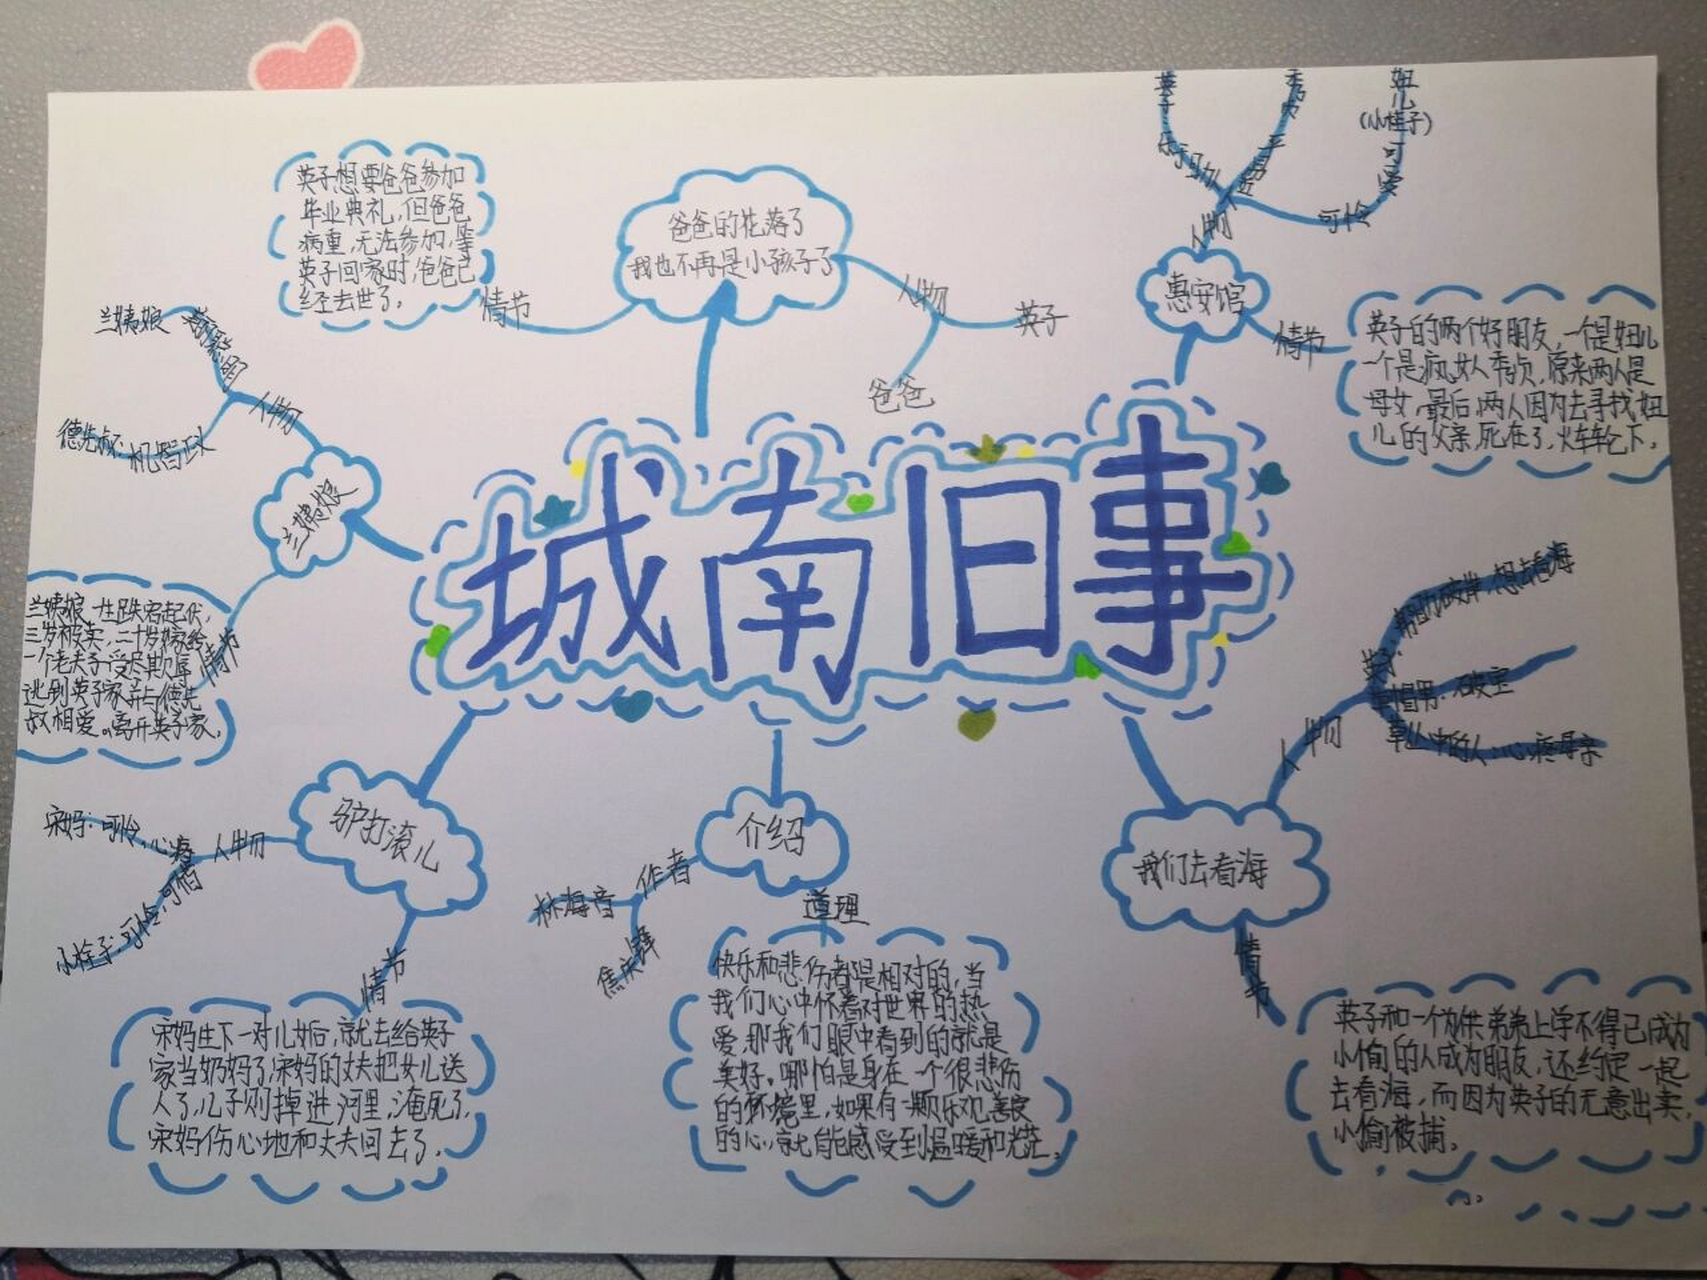 城南旧事
爸爸的花落了
我也不再是小孩子了
情节
英子想要爸爸参加
毕业典礼,但爸爸
病重,无法参加,等
英子回家时,爸爸已
经去世了。
人物
英子
爸爸
惠安馆
人物
英子:乐于助人
妞儿
(小桂子)
可爱
可怜
情节
英子的两个好朋友,一个是妞儿
一个是疯女人秀贞,原来两人是
母女,最后,两人因为去寻找妞
儿的父亲,死在了火车轮下。
兰姨娘
人物
兰姨娘
德先叔:机智正义
情节
兰姨娘,生
三岁被卖,二十岁嫁给
一个老夫子,受尽其辱
逃到英子家,并与德先
叔相爱。离开英子家。
驴打滚儿
人物
宋妈:可怜,心疼
小栓子:可怜,可惜
情节
宋妈生下一对儿女后,就去给英子
家当奶妈了,宋妈的丈夫把女儿送
人了,儿子则掉进河里,淹死了,
宋妈伤心地和丈夫回去了。
介绍
作者
林海音
道理
快乐和悲伤都是相对的,当
我们心中怀着对世界的热
爱,那我们眼中看到的就是
美好。哪怕是身在一个很悲伤
的环境里,如果有一颗乐观,善良
的心,就能感受到温暖和光茫。
我们去看海
人物
英子:
想去看海
草帽男:
草丛中的人:心疼母亲
情节
英子和一个为供弟弟上学不得已成为
小偷的人成为朋友,还约定一起
去看海,而因为英子的无意出卖,
小偷被捕。